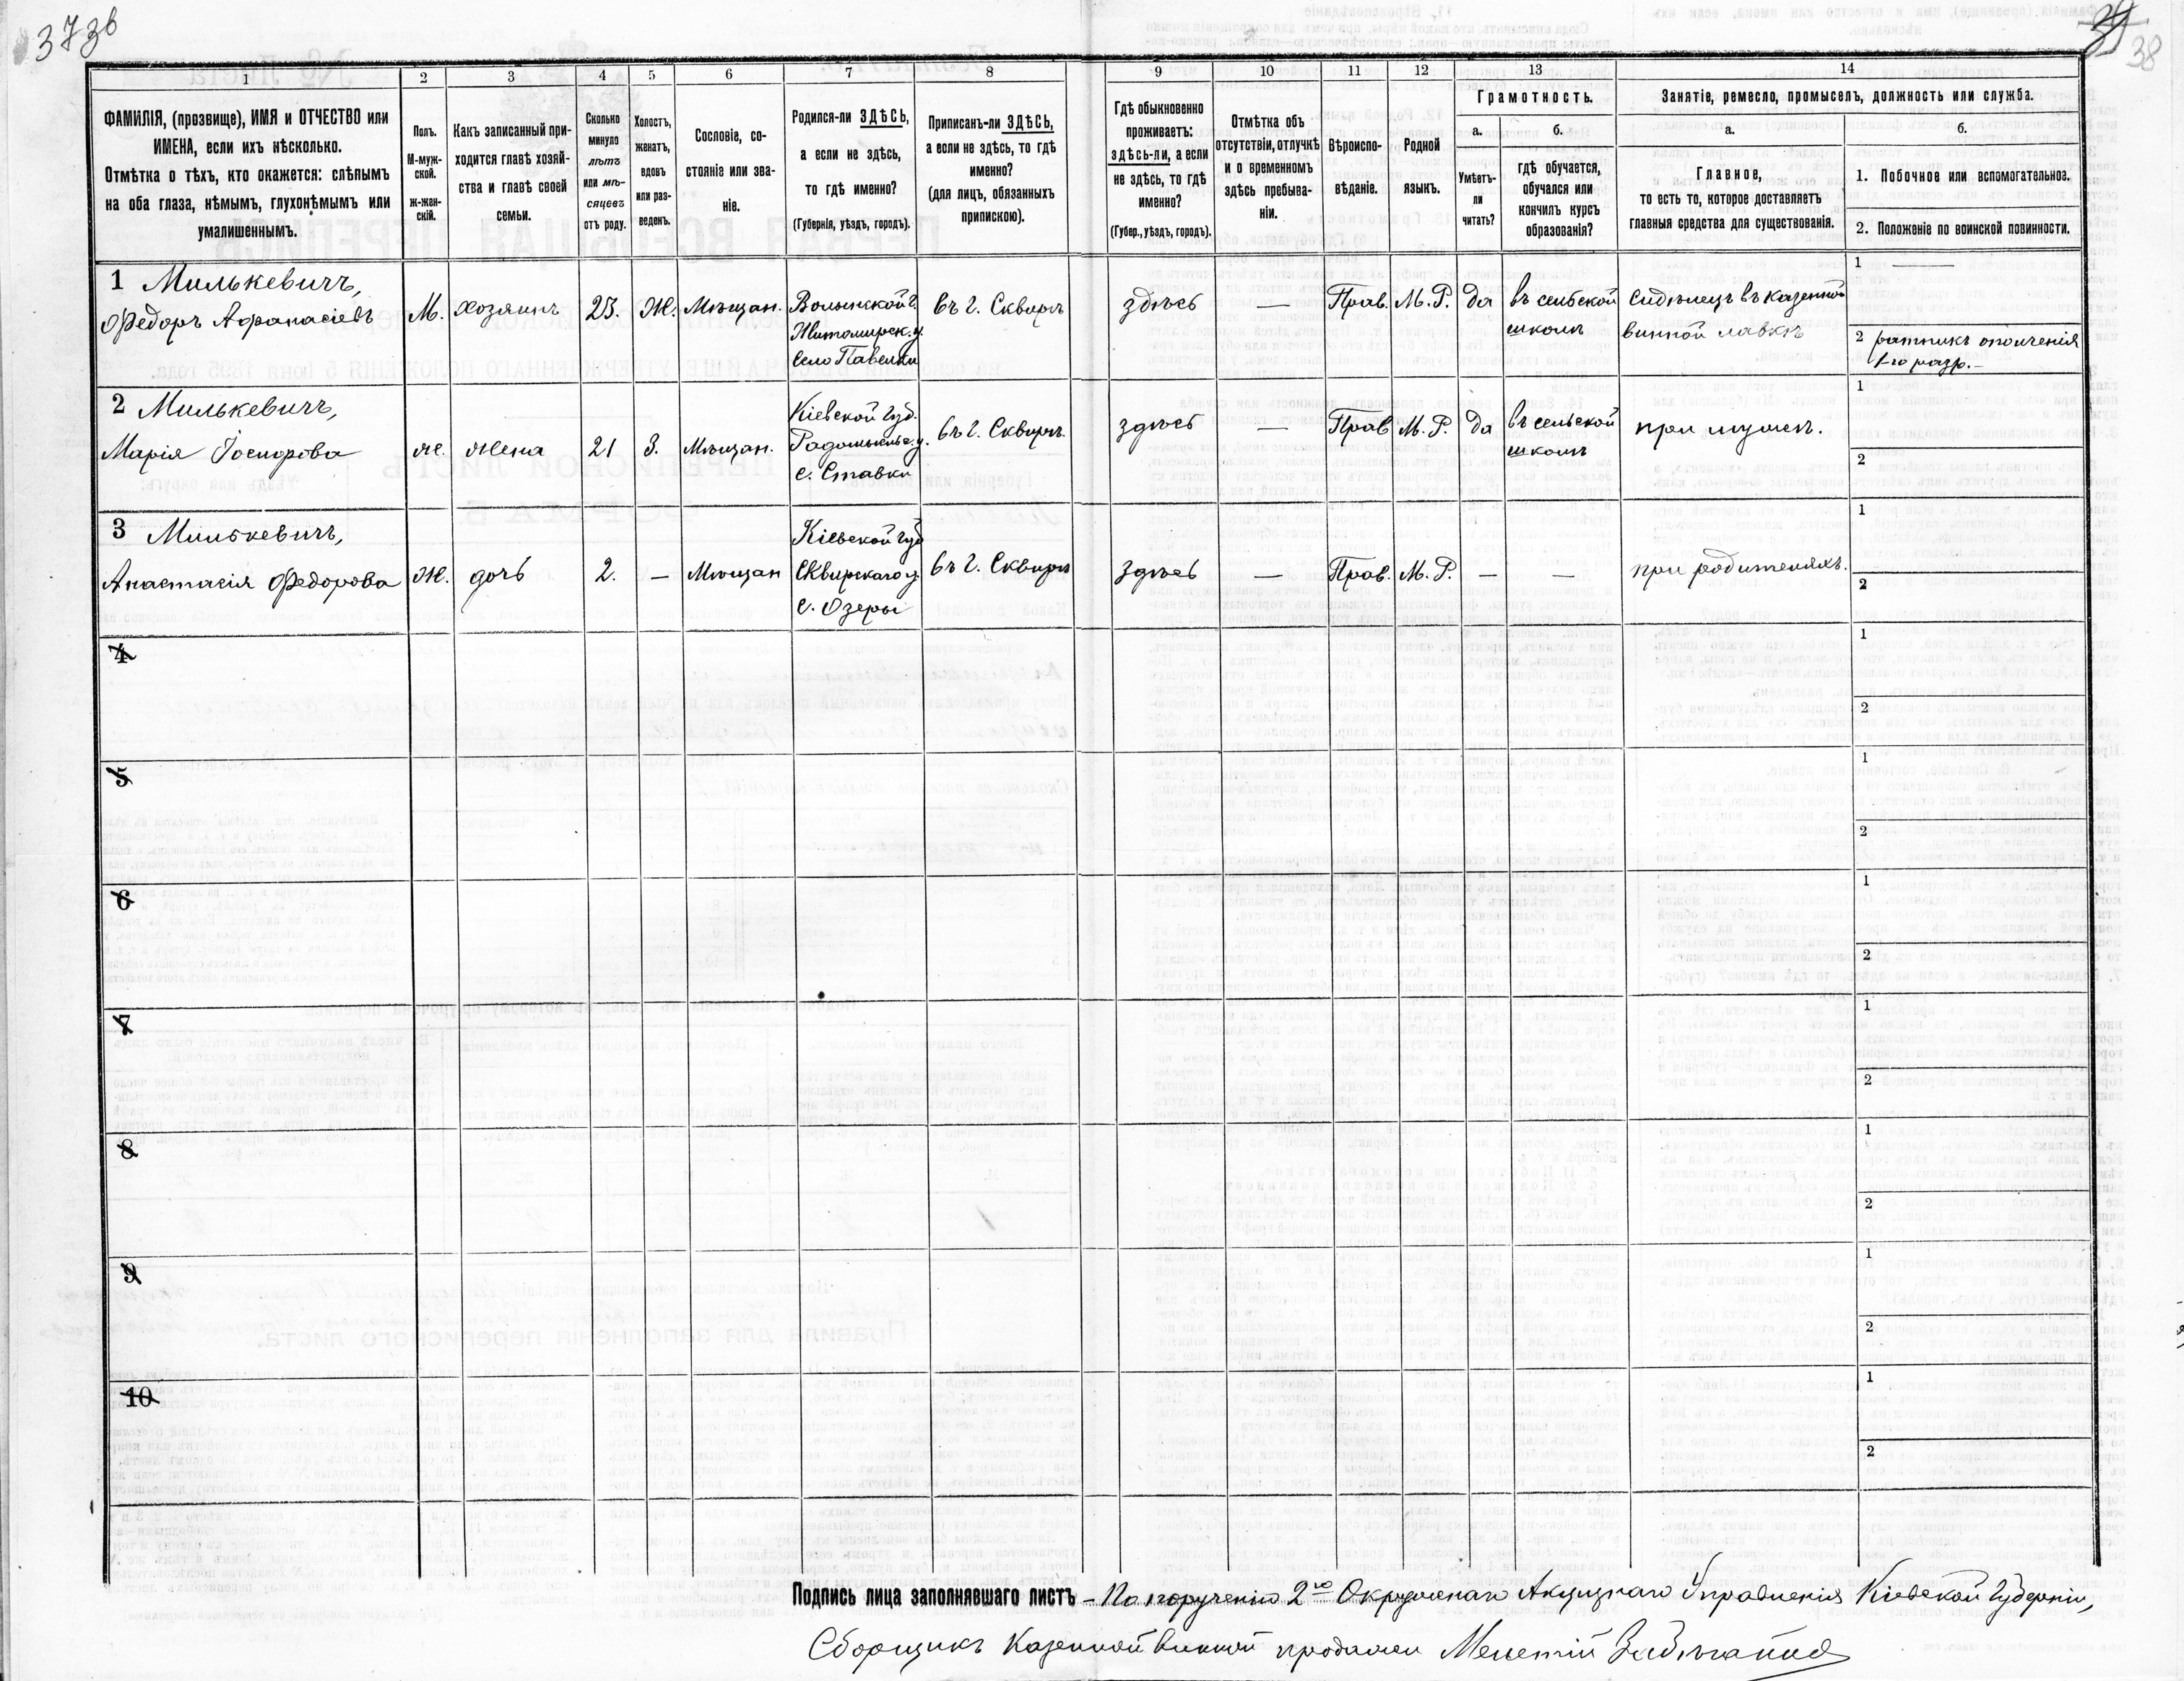 373б
38
1 2 3 4 5 6 7 8 9 10 11 12 13 14
ФАМИЛІЯ, (прозвище), ИМЯ и ОТЧЕСТВО или
ИМЕНА, если ихъ нѣсколько.
Отмѣтка о тѣхъ, кто окажется: слѣпымъ
на оба глаза, нѣмымъ, глухонѣмымъ или
умалишеннымъ.
Полъ.
М-муж-
ской.
ж-жен-
скій.
Какъ записанный при-
ходится главѣ хозяй-
ства и главѣ своей
семьи.
Сколько
минуло
лѣтъ
или мѣ-
сяцевъ
отъ роду.
Холостъ,
женатъ,
вдовъ
или раз-
веденъ.
Сословіе, со-
стояніе или зва-
ніе.
Родился-ли ЗДѢСЬ,
а если не здѣсь,
то гдѣ именно?
(Губернія, уѣздъ, городъ).
Приписанъ-ли ЗДѢСЬ,
а если не здѣсь, то гдѣ
именно?
(для лицъ, обязанныхъ
припискою).
Гдѣ обыкновенно
проживаетъ:
здѣсь-ли, а если
не здѣсь, то гдѣ
именно?
(Губер., уѣздъ, городъ).
Отмѣтка объ
отсутствіи, отлучкѣ
и о временномъ
здѣсь пребыва-
ніи.
Вѣроиспо-
вѣданіе.
Родной
языкъ.
Грамотность.
а.
Умѣетъ-
ли
читать?
б.
гдѣ обучается,
обучался или
кончилъ курсъ
образованія?
Занятіе, ремесло, промыселъ, должность или служба.
а.
Главное,
то есть то, которое доставляетъ
главныя средства для существованія.
б.
1. Побочное или вспомогательное.
2. Положеніе по воинской повинности.
1 Милькевичъ,
Федоръ Афанасіевъ
М.
хозяинъ
23.
Ж.
Мѣщан.
Волынской г.
Житомирск. у.
село Павелки
въ г. Сквирѣ
здѣсь
—
Прав.
М. Р.
да
въ сельской
школѣ
Сидѣлецъ въ казенной
винной лавкѣ
1 —
2 ратникъ ополченія
1-го разр. -
2 Милькевичъ,
Марія Іосифова
ж.
жена
21
З.
Мѣщан.
Кіевской губ.
Радомысльс. у.
с. Ставки
въ г. Сквирѣ.
здѣсь
—
Прав
М. Р.
да
въ сельской
школѣ
при мужѣ.
1
2
3 Милькевичъ,
Анастасія Федорова
Ж.
дочь
2.
—
Мѣщан
Кіевской губ
Сквирскаго у.
с. Озеры
въ г. Сквирѣ
здѣсь
—
Прав.
М. Р.
—
—
при родителяхъ.
1
2
4
1
2
5
1
2
6
1
2
7
1
2
8
1
2
9
1
2
10
1
2
Подпись лица заполнявшаго листъ - По порученію 2го Окружнаго Акцизнаго Управленія Кіевской Губерніи,
Сборщикъ Казенной винной продажи Мелетій